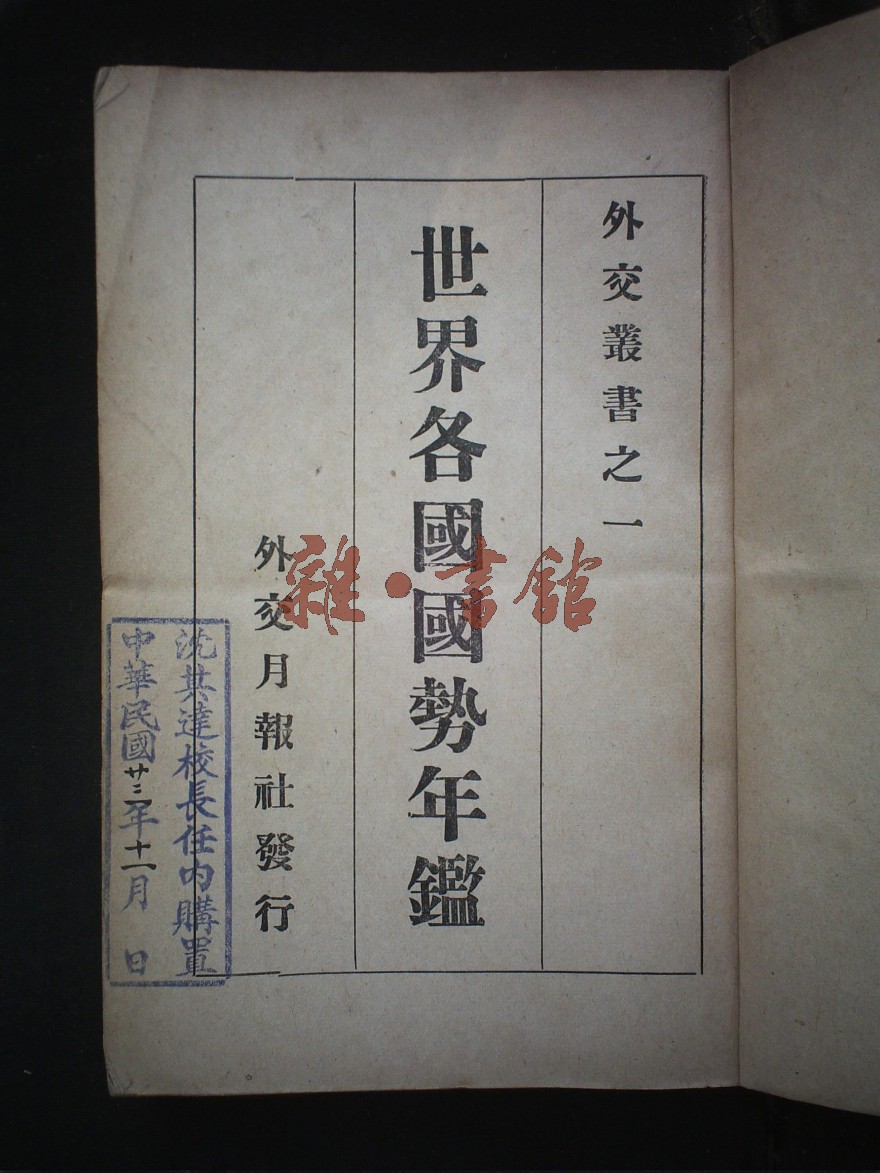 外交叢書之一
世界各國國勢年鑑
外交月報社發行
沈其達校長任內購置
中華民國廿三年十一月 日
雜·書館